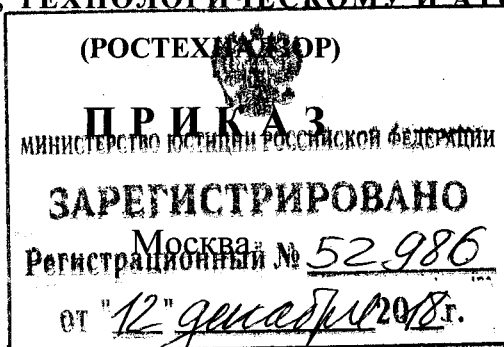 ТЕХНОЛОГИЧЕСКОМУ И АТ
(РОСТЕХНАДЗОР)
ПРИКАЗ
МИНИСТЕРСТВО ЮСТИЦИИ РОССИЙСКОЙ ФЕДЕРАЦИИ
ЗАРЕГИСТРИРОВАНО
Москва
Регистрационный № 52986
от "12" декабря 2018г.